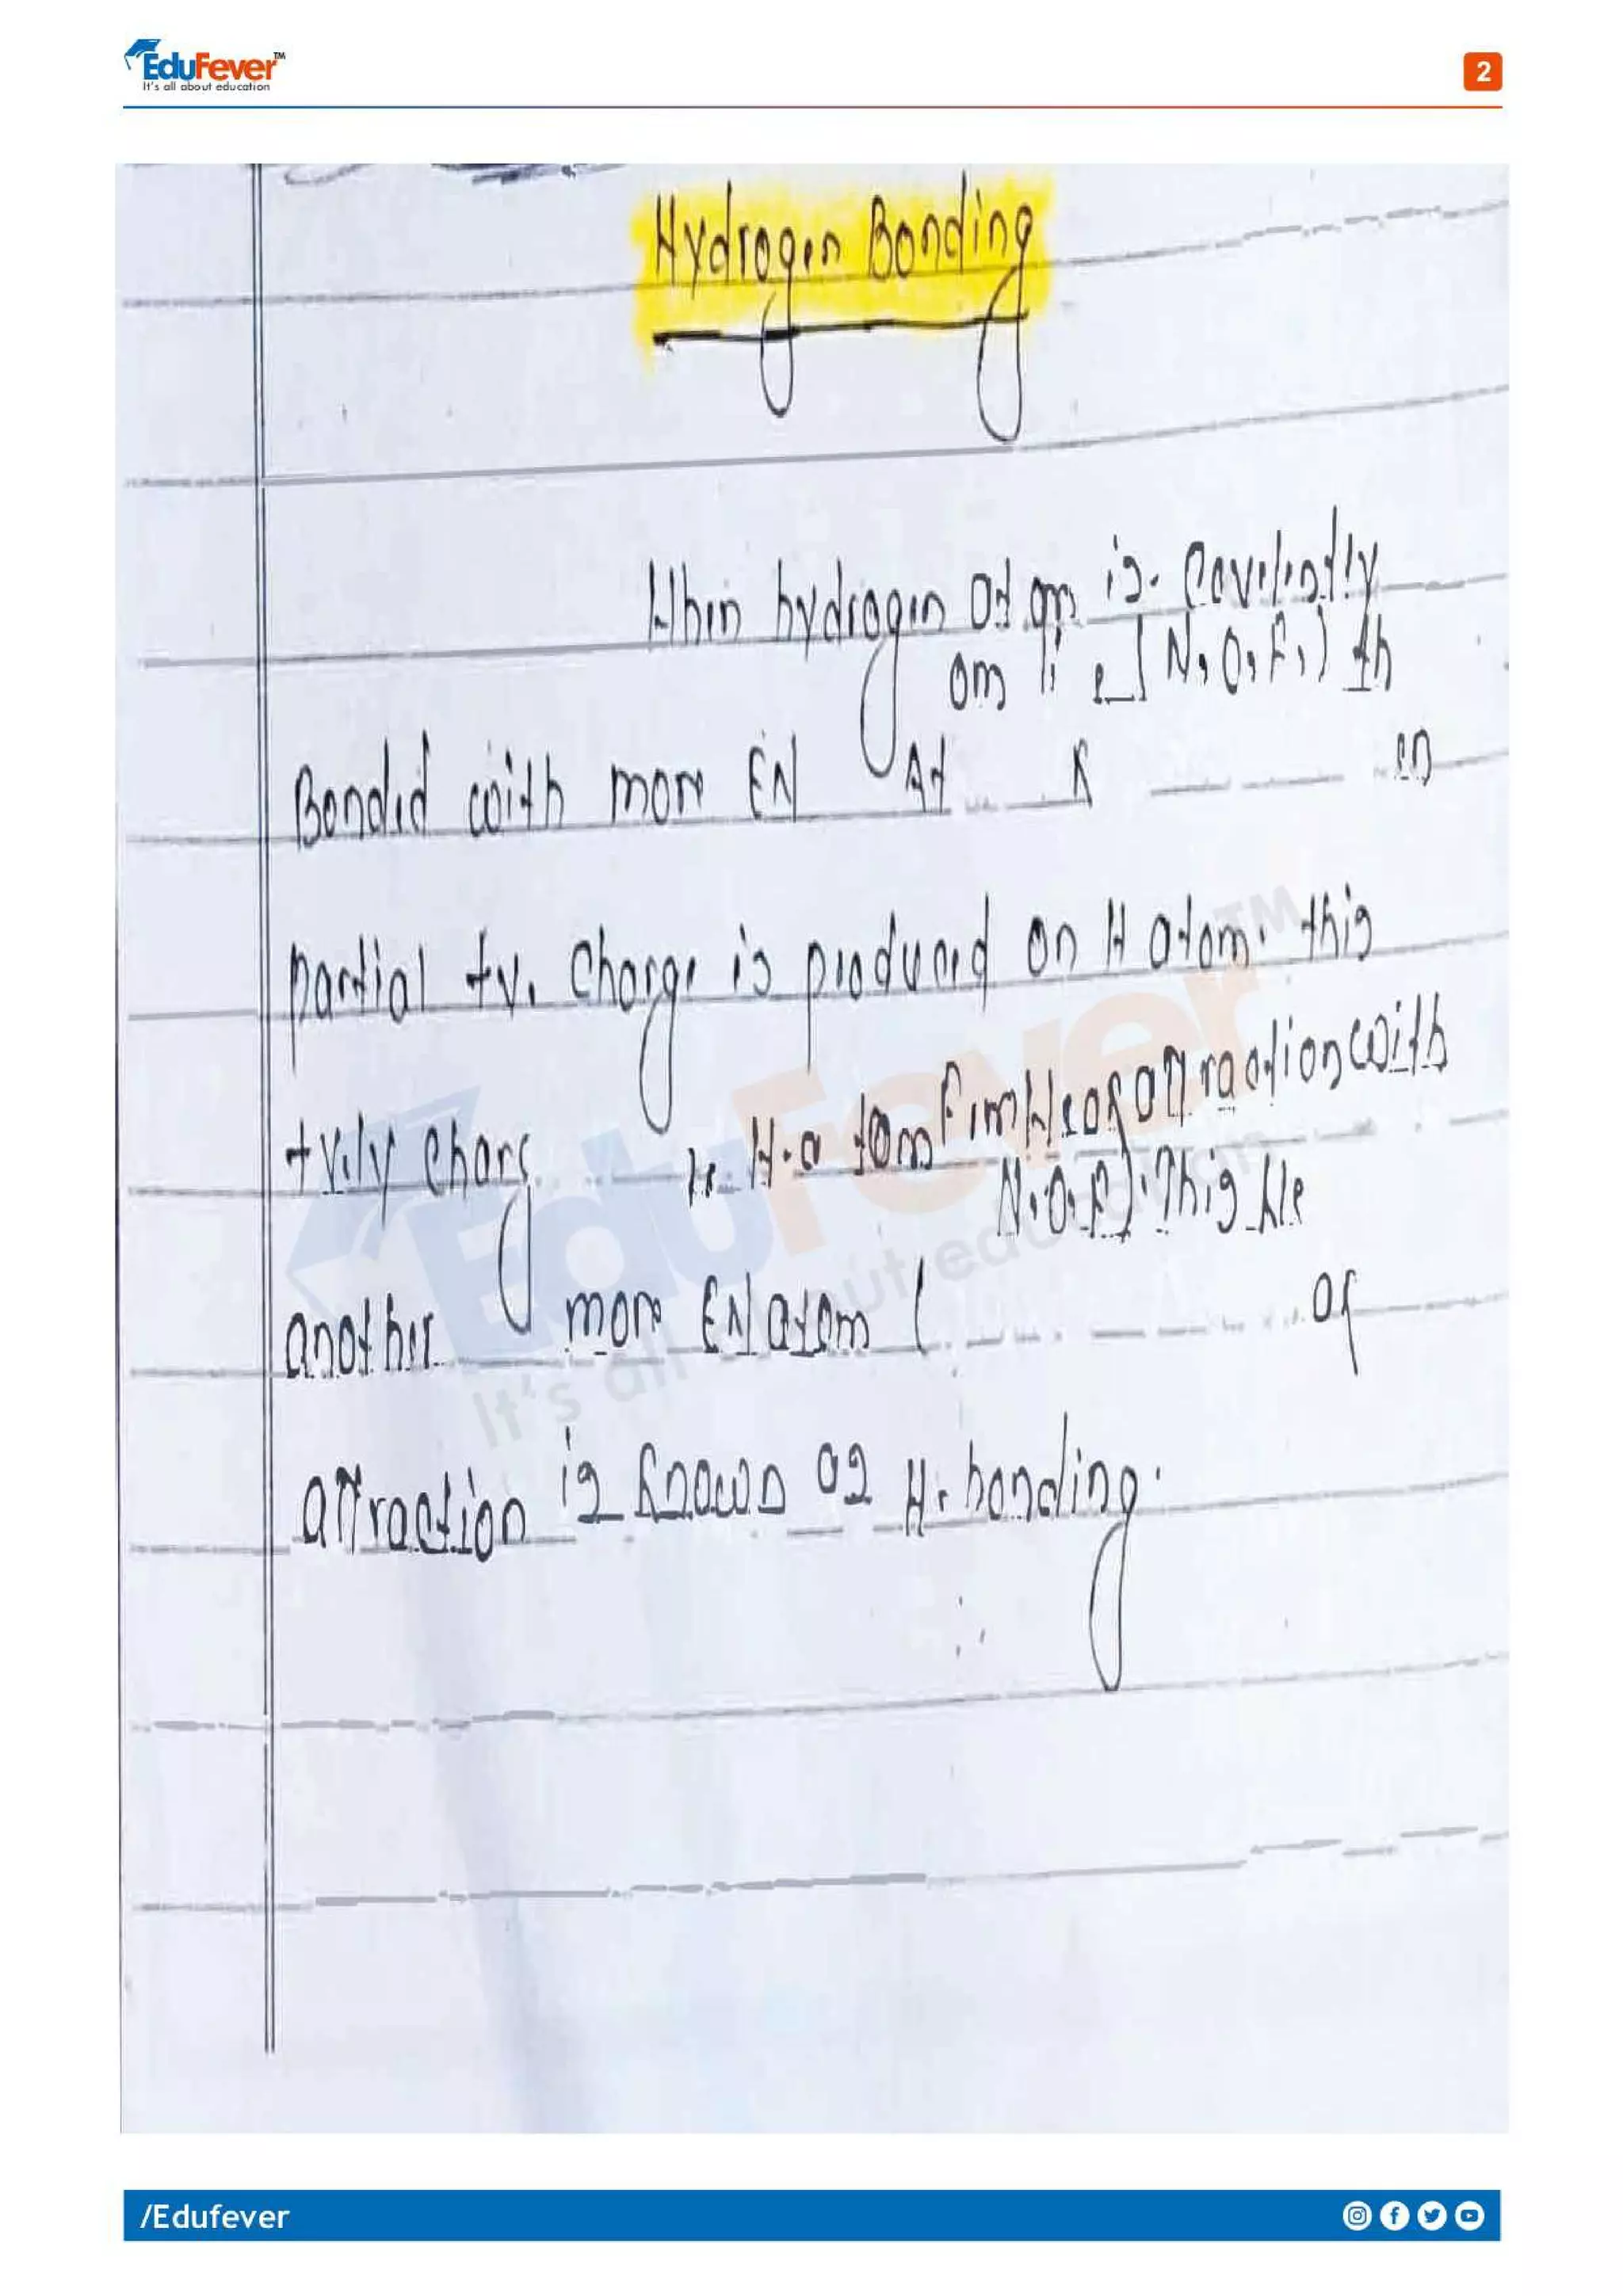 EduFever™
It's all about education
2
Hydrogen Bonding
When hydrogen atom is covelently
Bonded with more EN Atom like [N, O, F,) then
partial +ve charge is produced on H atom. this
+vely charg H-atom Firm force of attraction with
another more EN atom (N, O, F). This force of
attraction is known as H-bonding.
EduFever™
It's all about education
/Edufever